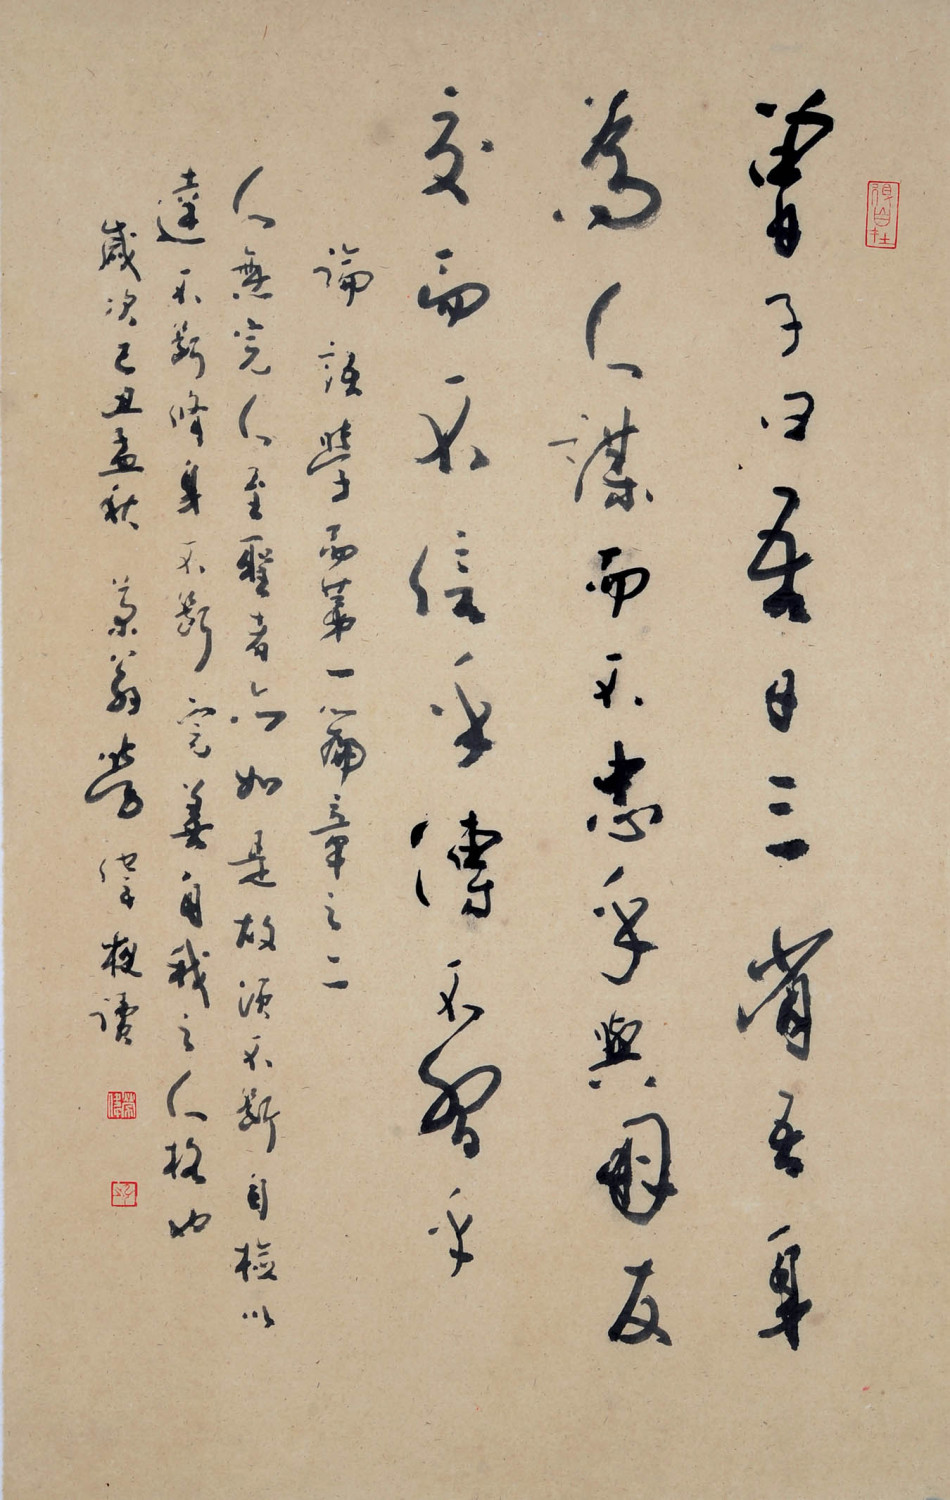 曾子曰吾日三省吾身
為人謀而不忠乎與朋友
交而不信乎傳不習乎
論語學而第一篇章之二
人無完人至聖者亦如是故須不斷自檢以
達不斷修身不斷完善自我之人格也
歲次己丑孟秋 翁勞偉 讀
勞偉